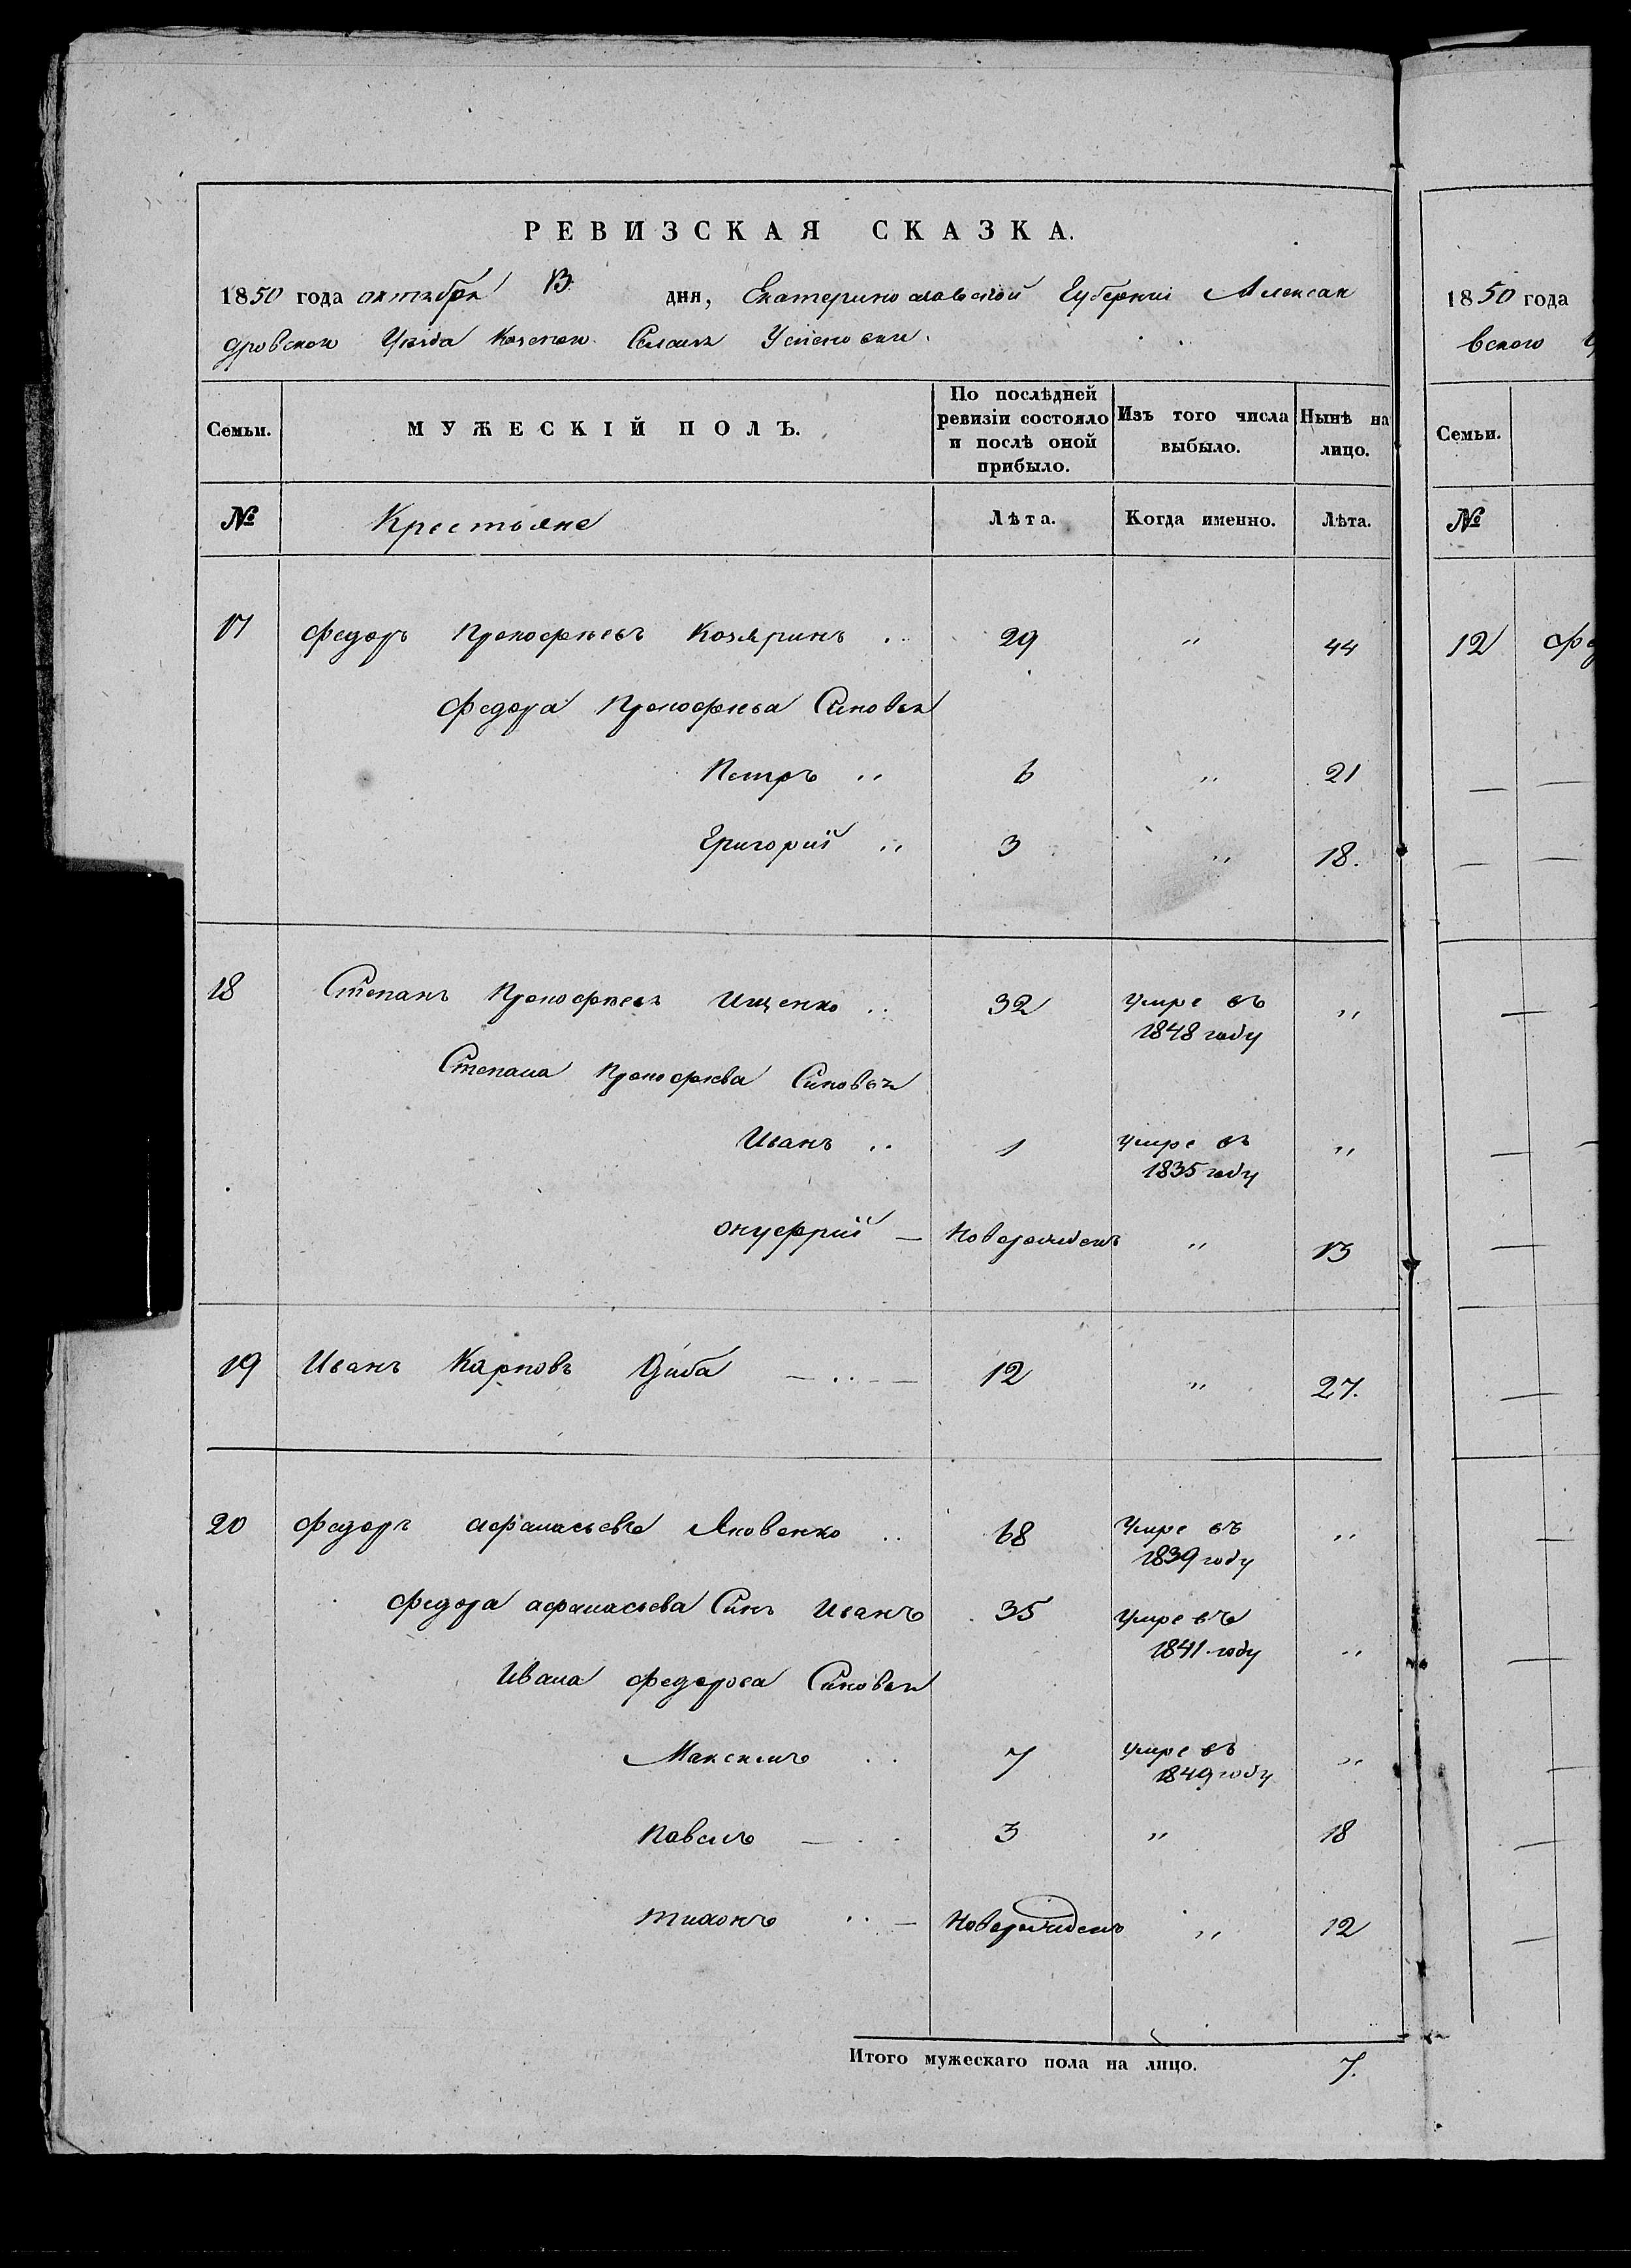 РЕВИЗСКАЯ СКАЗКА.
1850 года октября 13 дня, Екатеринославской Губернии Александровскаго Уезда Казенаго Селения Успеновки.
Семьи. МУЖЕСКІЙ ПОЛЪ. По послѣдней ревизіи состояло и послѣ оной прибыло. Изъ того числа выбыло. Нынѣ на лицо.
№ Крестьяне Лѣта. Когда именно. Лѣта.
17 Федоръ Прокофьевъ Козяринъ .. 29 " 44
Федора Прокофьева Сыновья
Петръ " 6 " 21
Григорій " 3 " 18.
18 Степанъ Прокофьевъ Ищенко .. 32 умре въ 1848 году "
Степана Прокофьева Сыновья
Иванъ .. 1 умре въ 1835 году "
Онуфрій — Новорожденъ " 13
19 Иванъ Карповъ Циба — .. — 12 " 27.
20 Федоръ Афанасьевъ Яковенко .. 68 Умре въ 1839 году "
Федора Афанасьева Сынъ Иванъ 35 Умре въ 1841 году "
Ивана Федорова Сыновья
Максимъ .. 7 умре въ 1849 году "
Павелъ — .. 3 " 18
Тихонъ .. — Новорожденъ " 12
Итого мужескаго пола на лицо. 7.
1850 года
вскаго
Семьи.
№
12